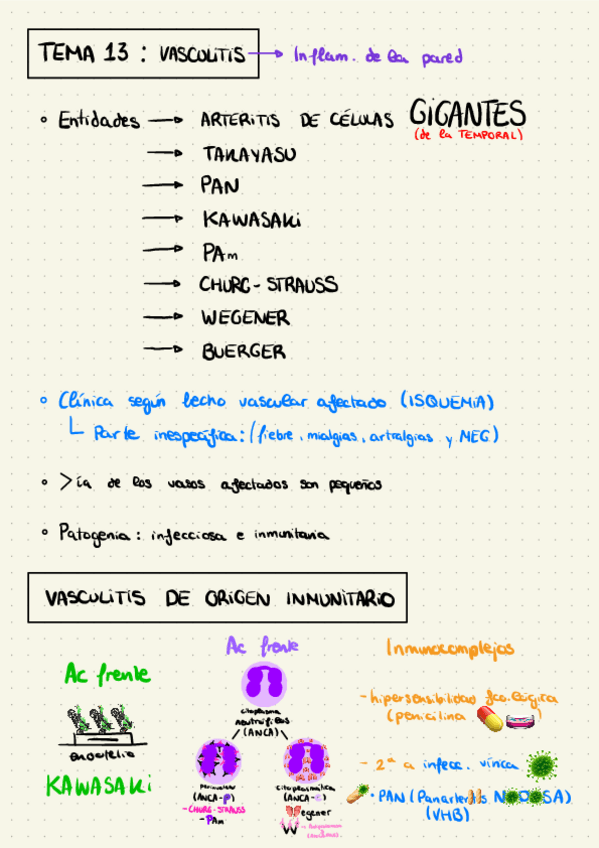 TEMA 13 : VASCULITIS → Inflam. de la pared
• Entidades → ARTERITIS DE CÉLULAS GIGANTES
(de la TEMPORAL)
→ TAKAYASU
→ PAN
→ KAWASAKI
→ PAm
→ CHURG-STRAUSS
→ WEGENER
→ BUERGER
• Clínica según lecho vascular afectado (ISQUEMIA)
Parte inespecífica: (fiebre, mialgias, artralgias y MEG)
• >ía de los vasos afectados son pequeños
• Patogenia : infecciosa e inmunitaria
VASCULITIS DE ORIGEN INMUNITARIO
Ac frente
endotelio
KAWASAKI
Ac frente
citoplasma
neutrófilos
(ANCA)
perinuclear
(ANCA-P)
-CHURG-STRAUSS
-PAm
citoplasmática
(ANCA-C)
Wegener
Inmunocomplejos
-hipersensibilidad fco.lógica
(penicilina)
- 2ª a infecc. vírica
• PAN (Panarteritis NODOSA)
(VHB)